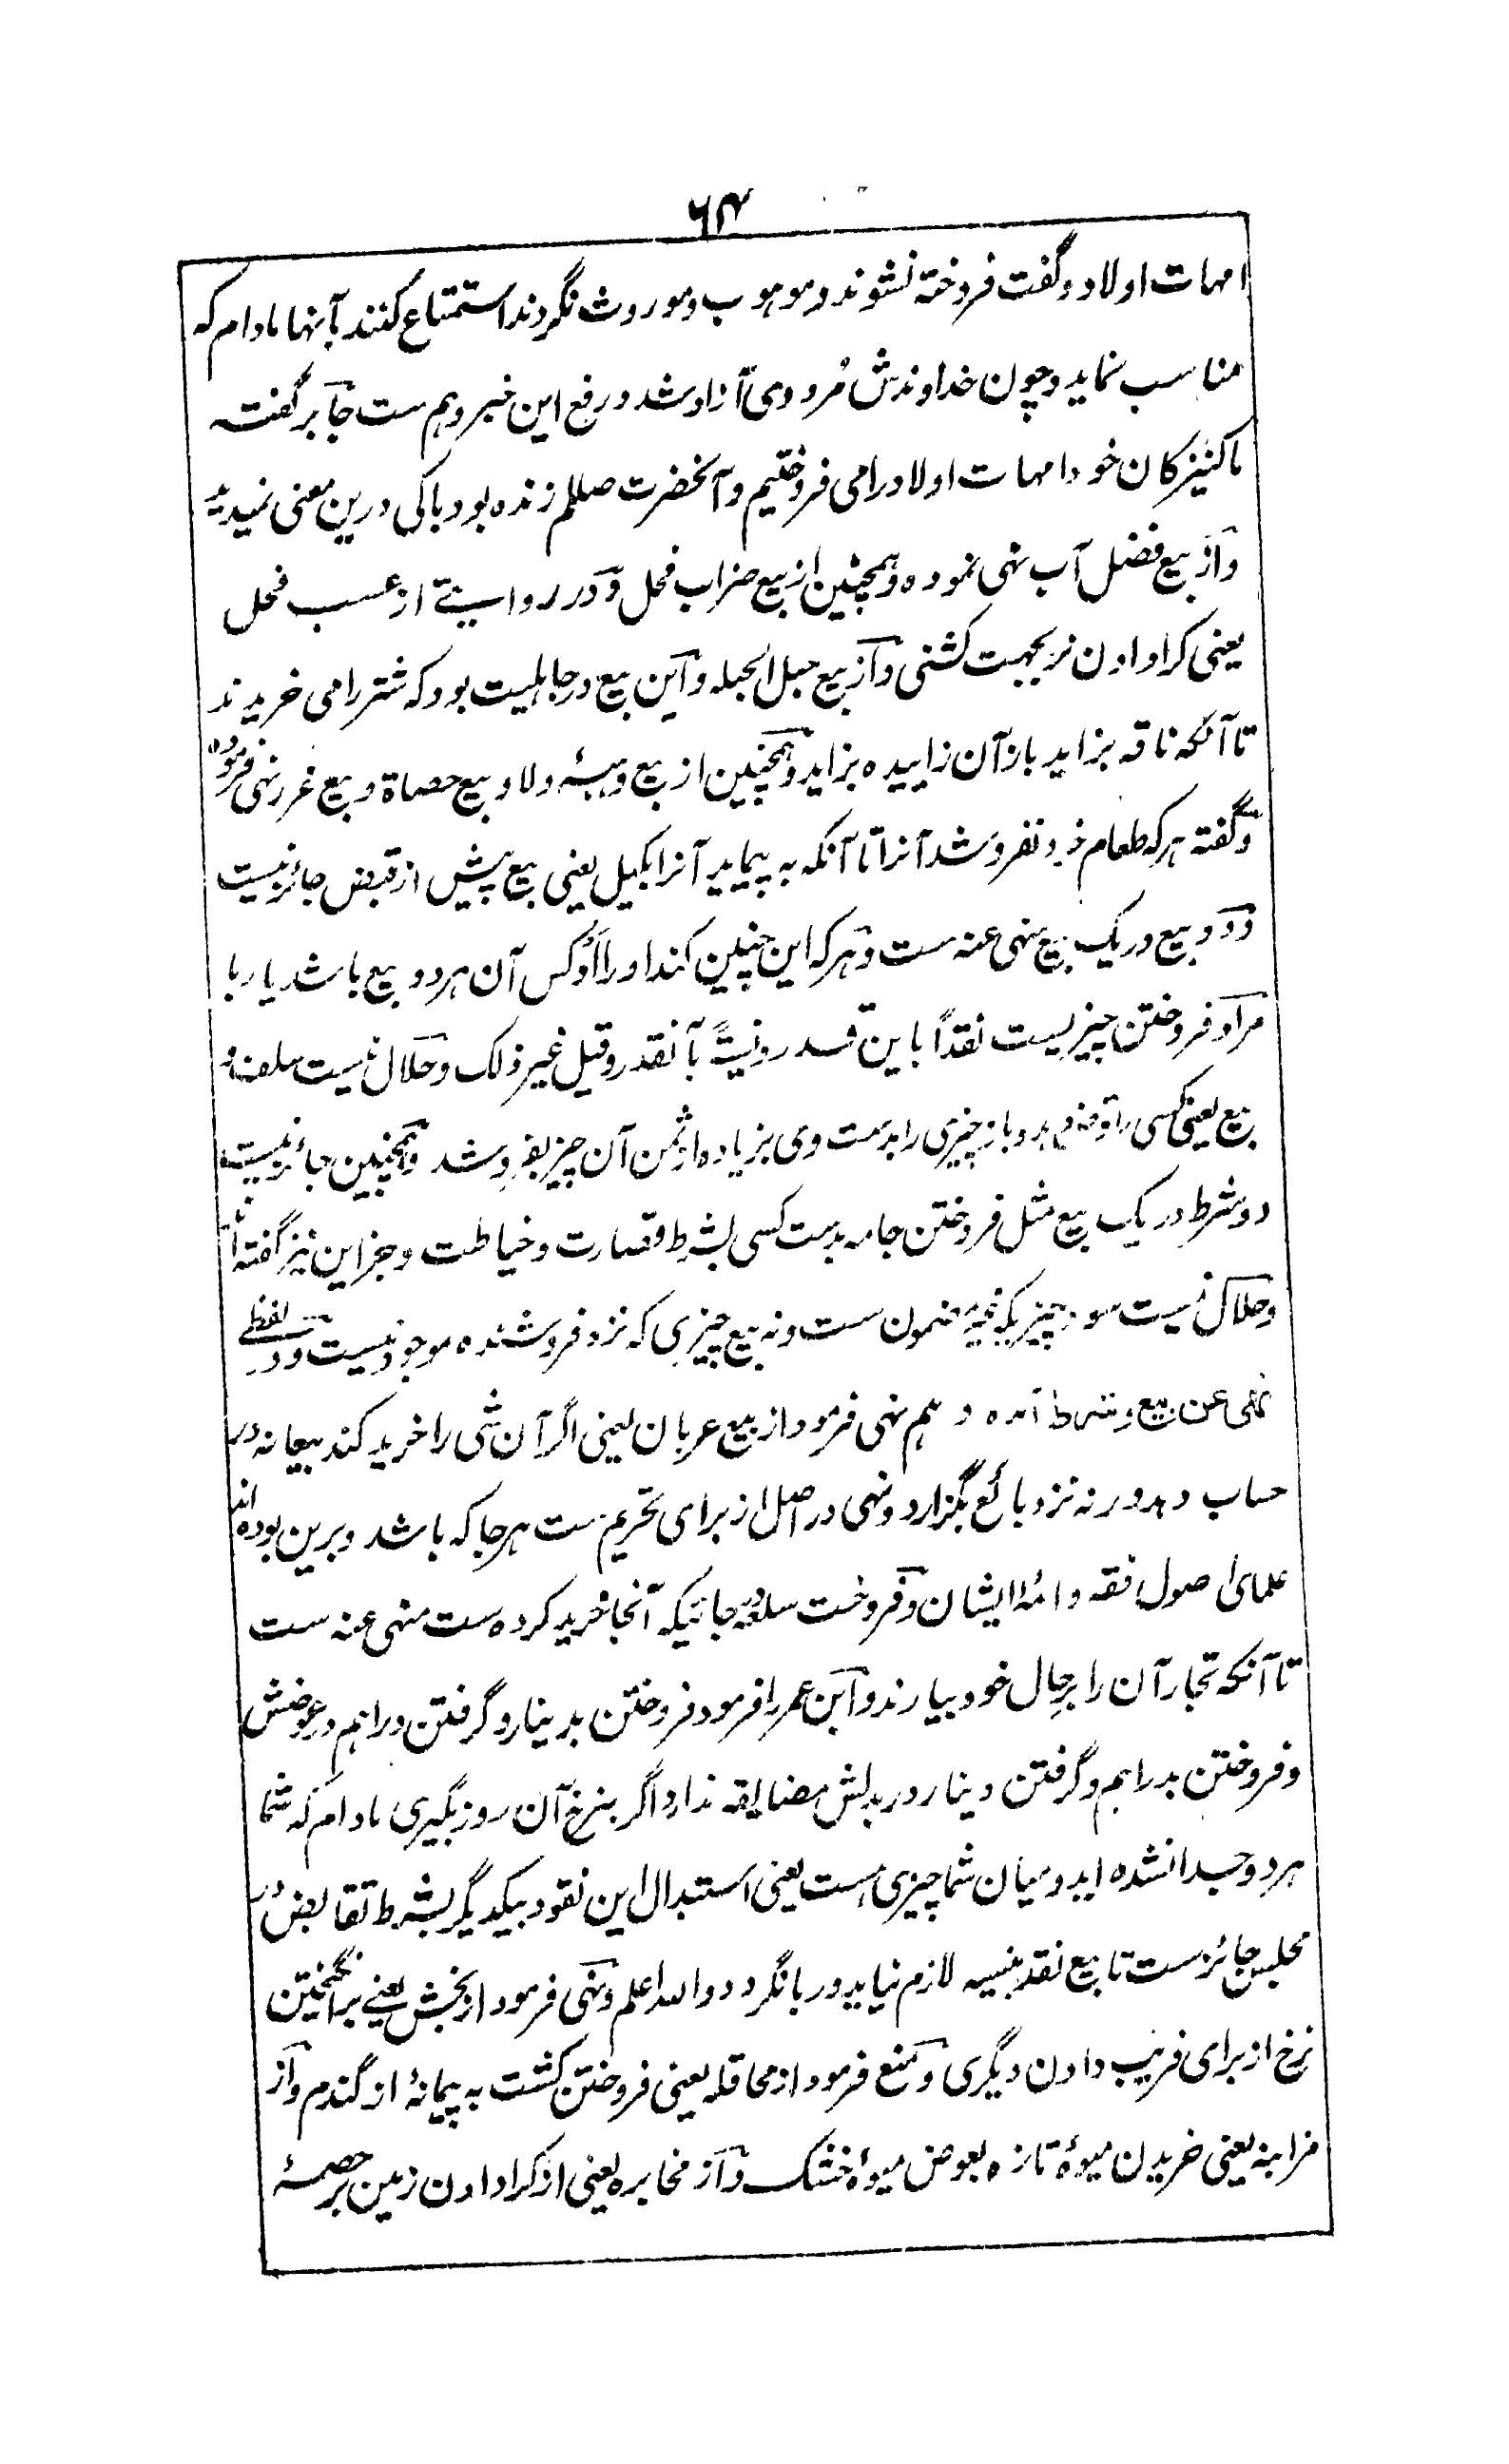 ۶۴
امهات اولاد و گفت فروخته نشوند و موهوب و موروث نگردند استمتاع کنند بآنها مادام که
مناسب نماید و چون خداوندش مُرد وی آزاد شد و رفع این خبر وهم ست جابر گفته
ما کنیزکان خود امهات اولاد را می فروختیم و آنحضرت صلعم زنده بود باکی درین معنی نمیدید
و از بیع فضل آب نهی نموده و همچنین از بیع ضراب فحل و در روایتے از عسب فحل
یعنی کرا دادن نر بجهت کشنی و از بیع حبل الحبله و این بیع در جاهلیت بود که شتر را می خریدند
تا آنکه ناقه بزاید باز آن زاییده بزاید و همچنین از بیع و هبهٔ ولا و بیع حصاة و بیع غرر نهی فرموده
و گفته هر که طعام خرد نفروشد آنرا تا آنکه به پیماید آنرا بکیل یعنی بیع پیش از قبض جائز نیست
و دو بیع در یک بیع منهی عنه ست و هر که این چنین کند او را اَوْکس آن هر دو بیع باشد یا ربا
مراد فروختن چیزیست نقداً باین قدر و نسیئةً بآنقدر و قیل غیر ذلک و حلال نیست سلف و
بیع یعنی کسی را قرض دهد و باز چیزی را بدست وی بزیاده از ثمن آن چیز بفروشد و همچنین جائز نیست
دو شرط در یک بیع مثل فروختن جامه بدست کسی بشرط قصارت و خیاطت و جز این نیز گفته اند
و حلال نیست سود چیزیکه غیر مضمون ست و نه بیع چیزی که نزد فروشنده موجود نیست و در لفظے
نهی عن بیع و شرط آمده و هم نهی فرمود از بیع عربان یعنی اگر آن شی را خرید کند بیعانه در
حساب دهد ورنه نزد بائع بگزارد و نهی در اصل از برای تحریم ست هر جا که باشد و برین بوده اند
علمای اصول فقه و ائمهٔ ایشان و فروخت سلعه در جائیکه آنجا خرید کرده ست منهی عنه ست
تا آنکه تجار آن را برحال خود بیارند و ابن عمر را فرمود فروختن بدینار و گرفتن دراهم در عوضش
و فروختن بدراهم و گرفتن دینار در بدلش مضایقه ندارد اگر بنرخ آن روز بگیری مادام که شما
هر دو جدا نشده اید و میان شما چیزی هست یعنی استبدال این نقود بیکدیگر بشرط تقابض در
مجلس جائز ست تا بیع نقد بنسیه لازم نیاید و ربا نگردد والله اعلم و نهی فرمود از نجش یعنے برانگیختن
نرخ از برای فریب دادن دیگری و منع فرمود از محاقله یعنی فروختن کشت به پیمانهٔ از گندم و از
مزابنه یعنی خریدن میوهٔ تازه بعوض میوهٔ خشک و از مخابره یعنی از کرا دادن زمین بر حصهٔ